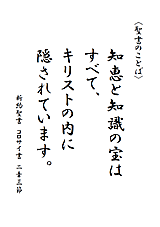 〈聖書のことば〉
知恵と知識の宝は
すべて、
キリストの内に
隠されています。
新約聖書 コロサイ書 二章三節